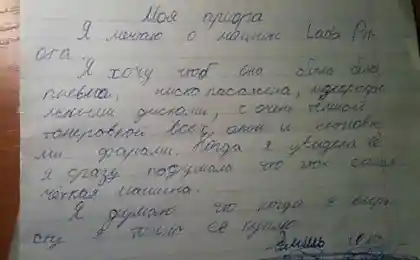 Моя приора
Я мечтаю о машине Lada Pri-
ora.
Я хочу чтоб она была бело
низкопосажена,
дисками, с очень тёмной
тонеровкой всех окон и
ми фарами. Когда я увидела её
я сразу подумала что это самая
чёткая машина.
Я думаю что когда я выра-
сту я точно её куплю